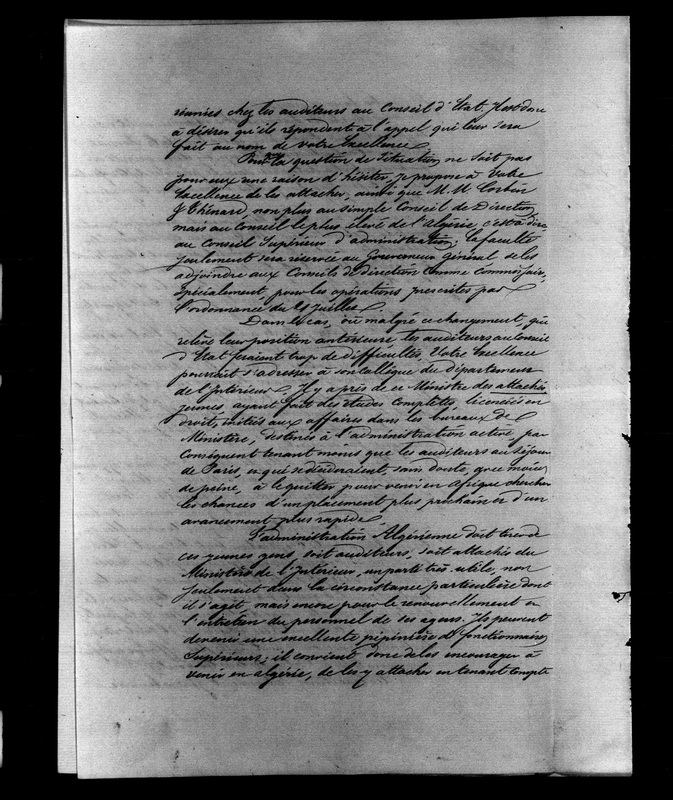 réunies chez les auditeurs au Conseil d'Etat. Il est donc
à désirer qu'ils répondent à l'appel qui leur sera
fait au nom de Votre Excellence.
Pour que la question de situation ne soit pas
pour eux une raison d'hésiter, je propose à Votre
Excellence de les attacher, ainsi que M. M. Corbin
& Thénard, non plus au simple Conseil de Direction,
mais au Conseil le plus élevé de l'Algérie, c'est à dire
au Conseil Supérieur d'administration; la faculté
seulement sera réservée au Gouverneur général de les
adjoindre aux Conseils de direction comme Commissaires,
spécialement, pour les opérations prescrites par
l'ordonnance du 21 juillet.
Dans le cas, où malgré ce changement, qui
relève leur position antérieure les auditeurs au Conseil
d'Etat feraient trop de difficultés, Votre Excellence
pourrait s'adresser à son Collègue du département
de l'Intérieur. Il y a près de ce Ministre des attachés
jeunes, ayant fait des études complètes, licenciés en
droit, initiés aux affaires dans les bureaux de
Ministère, destinés à l'administration active par
Conséquent tenant moins que les auditeurs au séjour
de Paris, et qui se décideraient, sans doute, avec moins
de peine, à le quitter pour venir en Afrique chercher
les chances d'un placement plus prochain et d'un
avancement plus rapide.
L'administration Algérienne doit tirer de
ces jeunes gens, soit auditeurs, soit attachés du
Ministère de l'Intérieur, un parti très utile, non
seulement dans la circonstance particulière dont
il s'agit, mais encore pour le renouvellement et
l'entretien du personnel de ses agens. Ils peuvent
devenir une excellente pépinière de fonctionnaires
Supérieurs; il convient donc de les encourager à
venir en algérie, de les y attacher en tenant compte